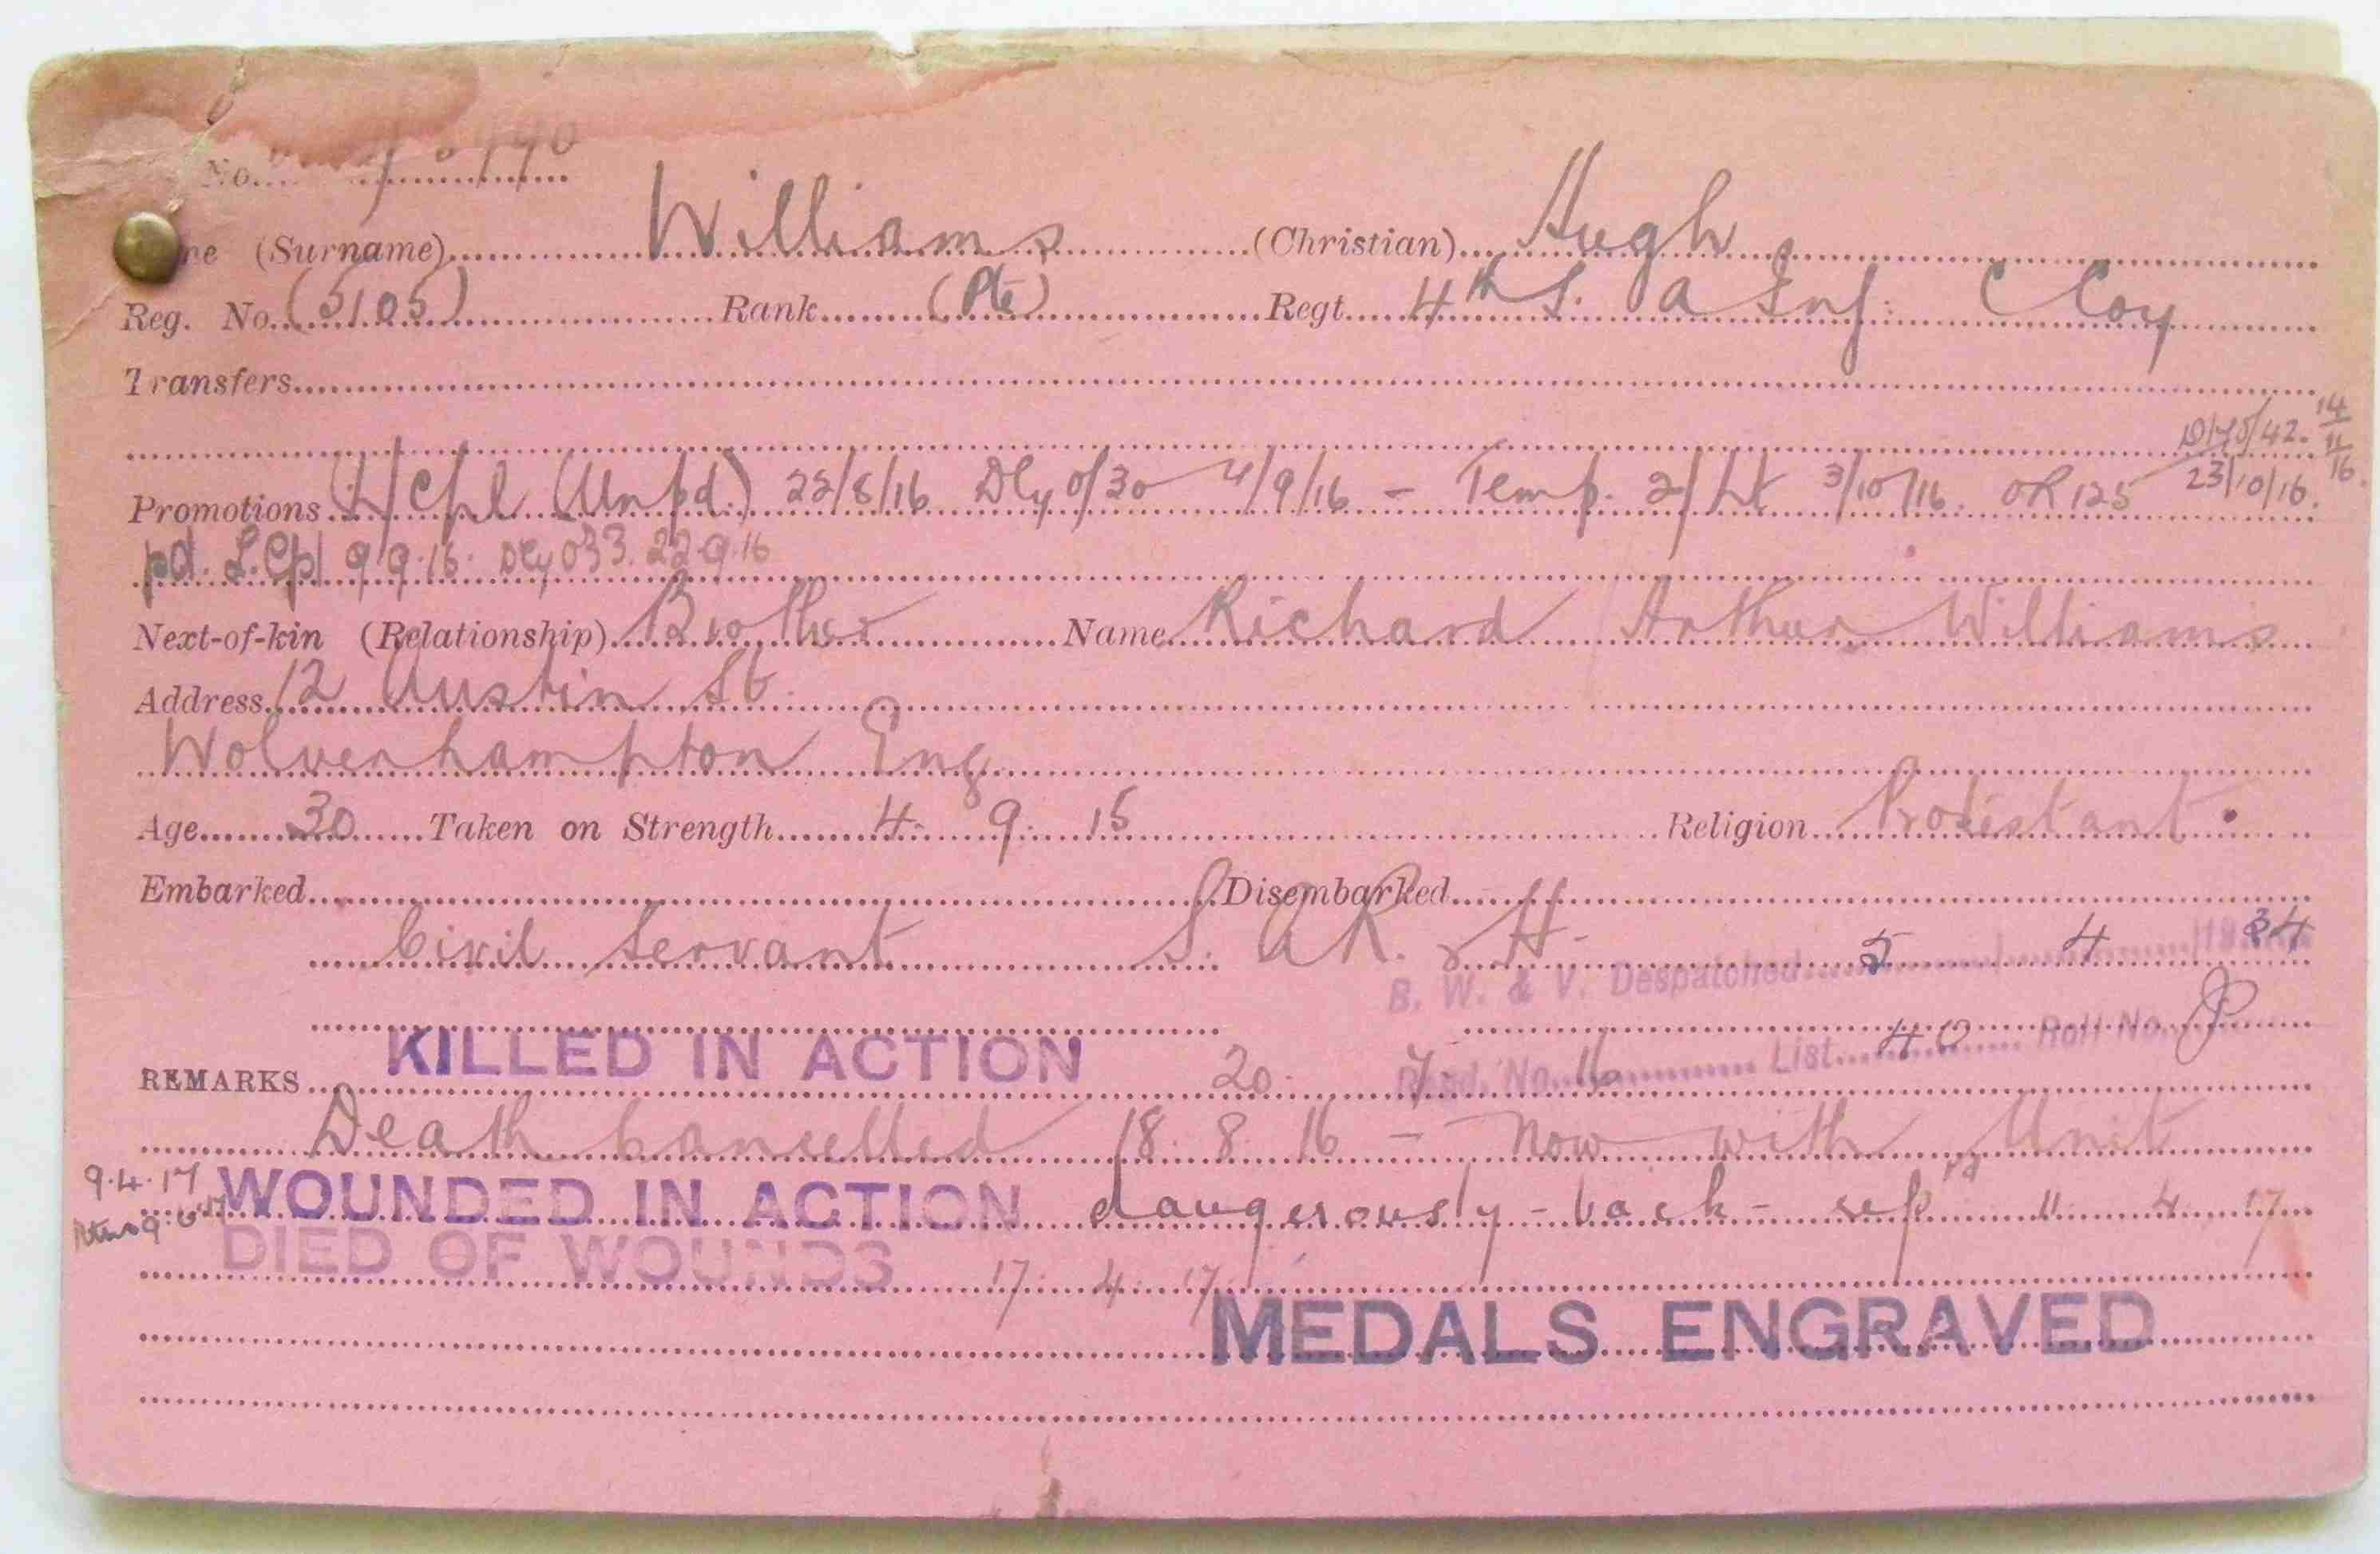 No.
(Surname) Williams (Christian) Hugh
Reg. No. (5105) Rank (Pte) Regt. 4th S. A Inf: C Coy
Transfers
14
D/yo/42. 11
Promotions L/Cpl (Unpd.) 22/8/16 Dly o/30 4/9/16 - Temp. 2/Lt 3/10/16. OR 125 23/10/16. 16.
pd. L.Cpl 9.9.16. Dly O 33. 22.9.16
Next-of-kin (Relationship) Brother Name Richard Arthur Williams
Address 12 Austin St.
Wolverhampton Eng
Age 30 Taken on Strength 4. 9. 15 Religion Protestant
Embarked Disembarked
Civil Servant S. A R. & H.
B. W. & V. Despatched 5 4 1934
List 40 Roll No.
REMARKS KILLED IN ACTION 20. 7. 16
Death Cancelled 18. 8. 16 - Now with Unit
9.4.17 WOUNDED IN ACTION dangerously - back - 11. 4. 17
DIED OF WOUNDS 17. 4. 17.
MEDALS ENGRAVED